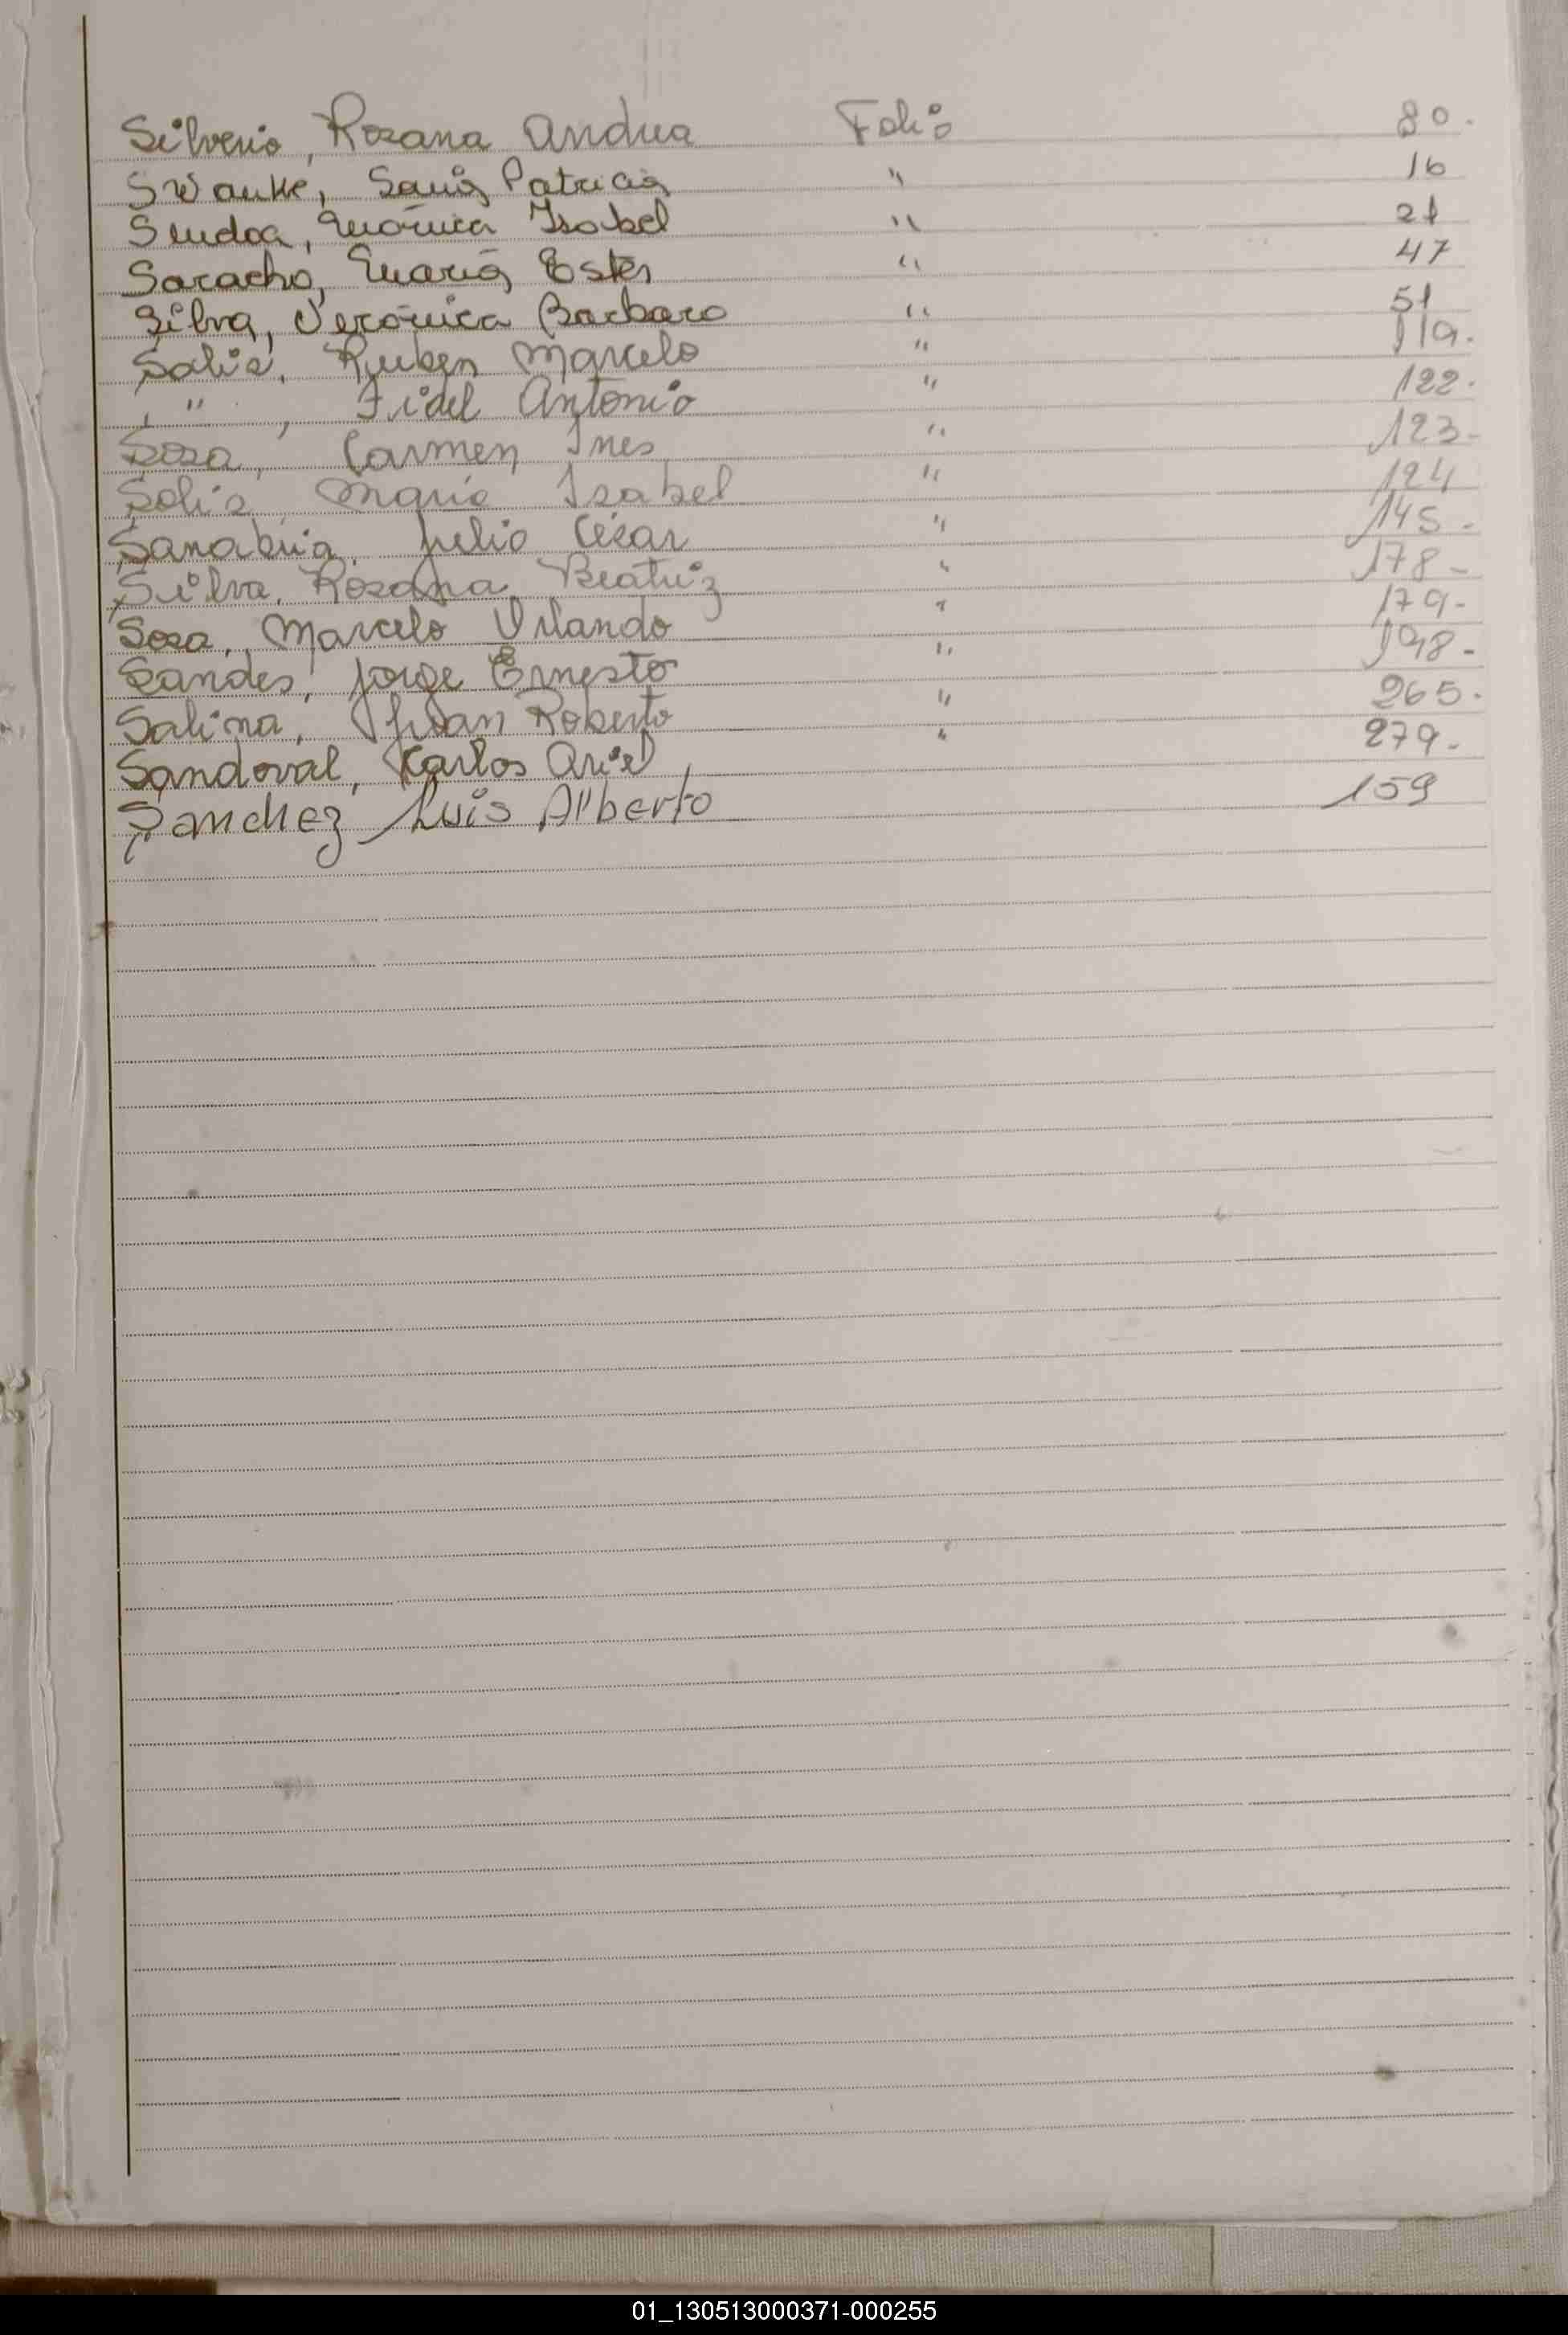 Silverio, Rozana Andrea Folio 80.
Swanke, Sonia Patricia " 16
Sendoa, Mónica Isabel " 21
Saracho, María Ester " 47
Silva, Verónica Barbara " 51
Solis, Ruben Marcelo " 119.
" , Fidel Antonio " 122.
Sosa, Carmen Ines " 123-
Solis, Maria Isabel " 124
Sanabria, Julio César " 145-
Silva, Rozana Beatriz " 178-
Sosa, Marcelo Orlando " 179-
Sandes, Jorge Ernesto " 198-
Salina, Juan Roberto " 265.
Sandoval, Carlos Ariel " 279-
Sanchez Luis Alberto 159
01_130513000371-000255